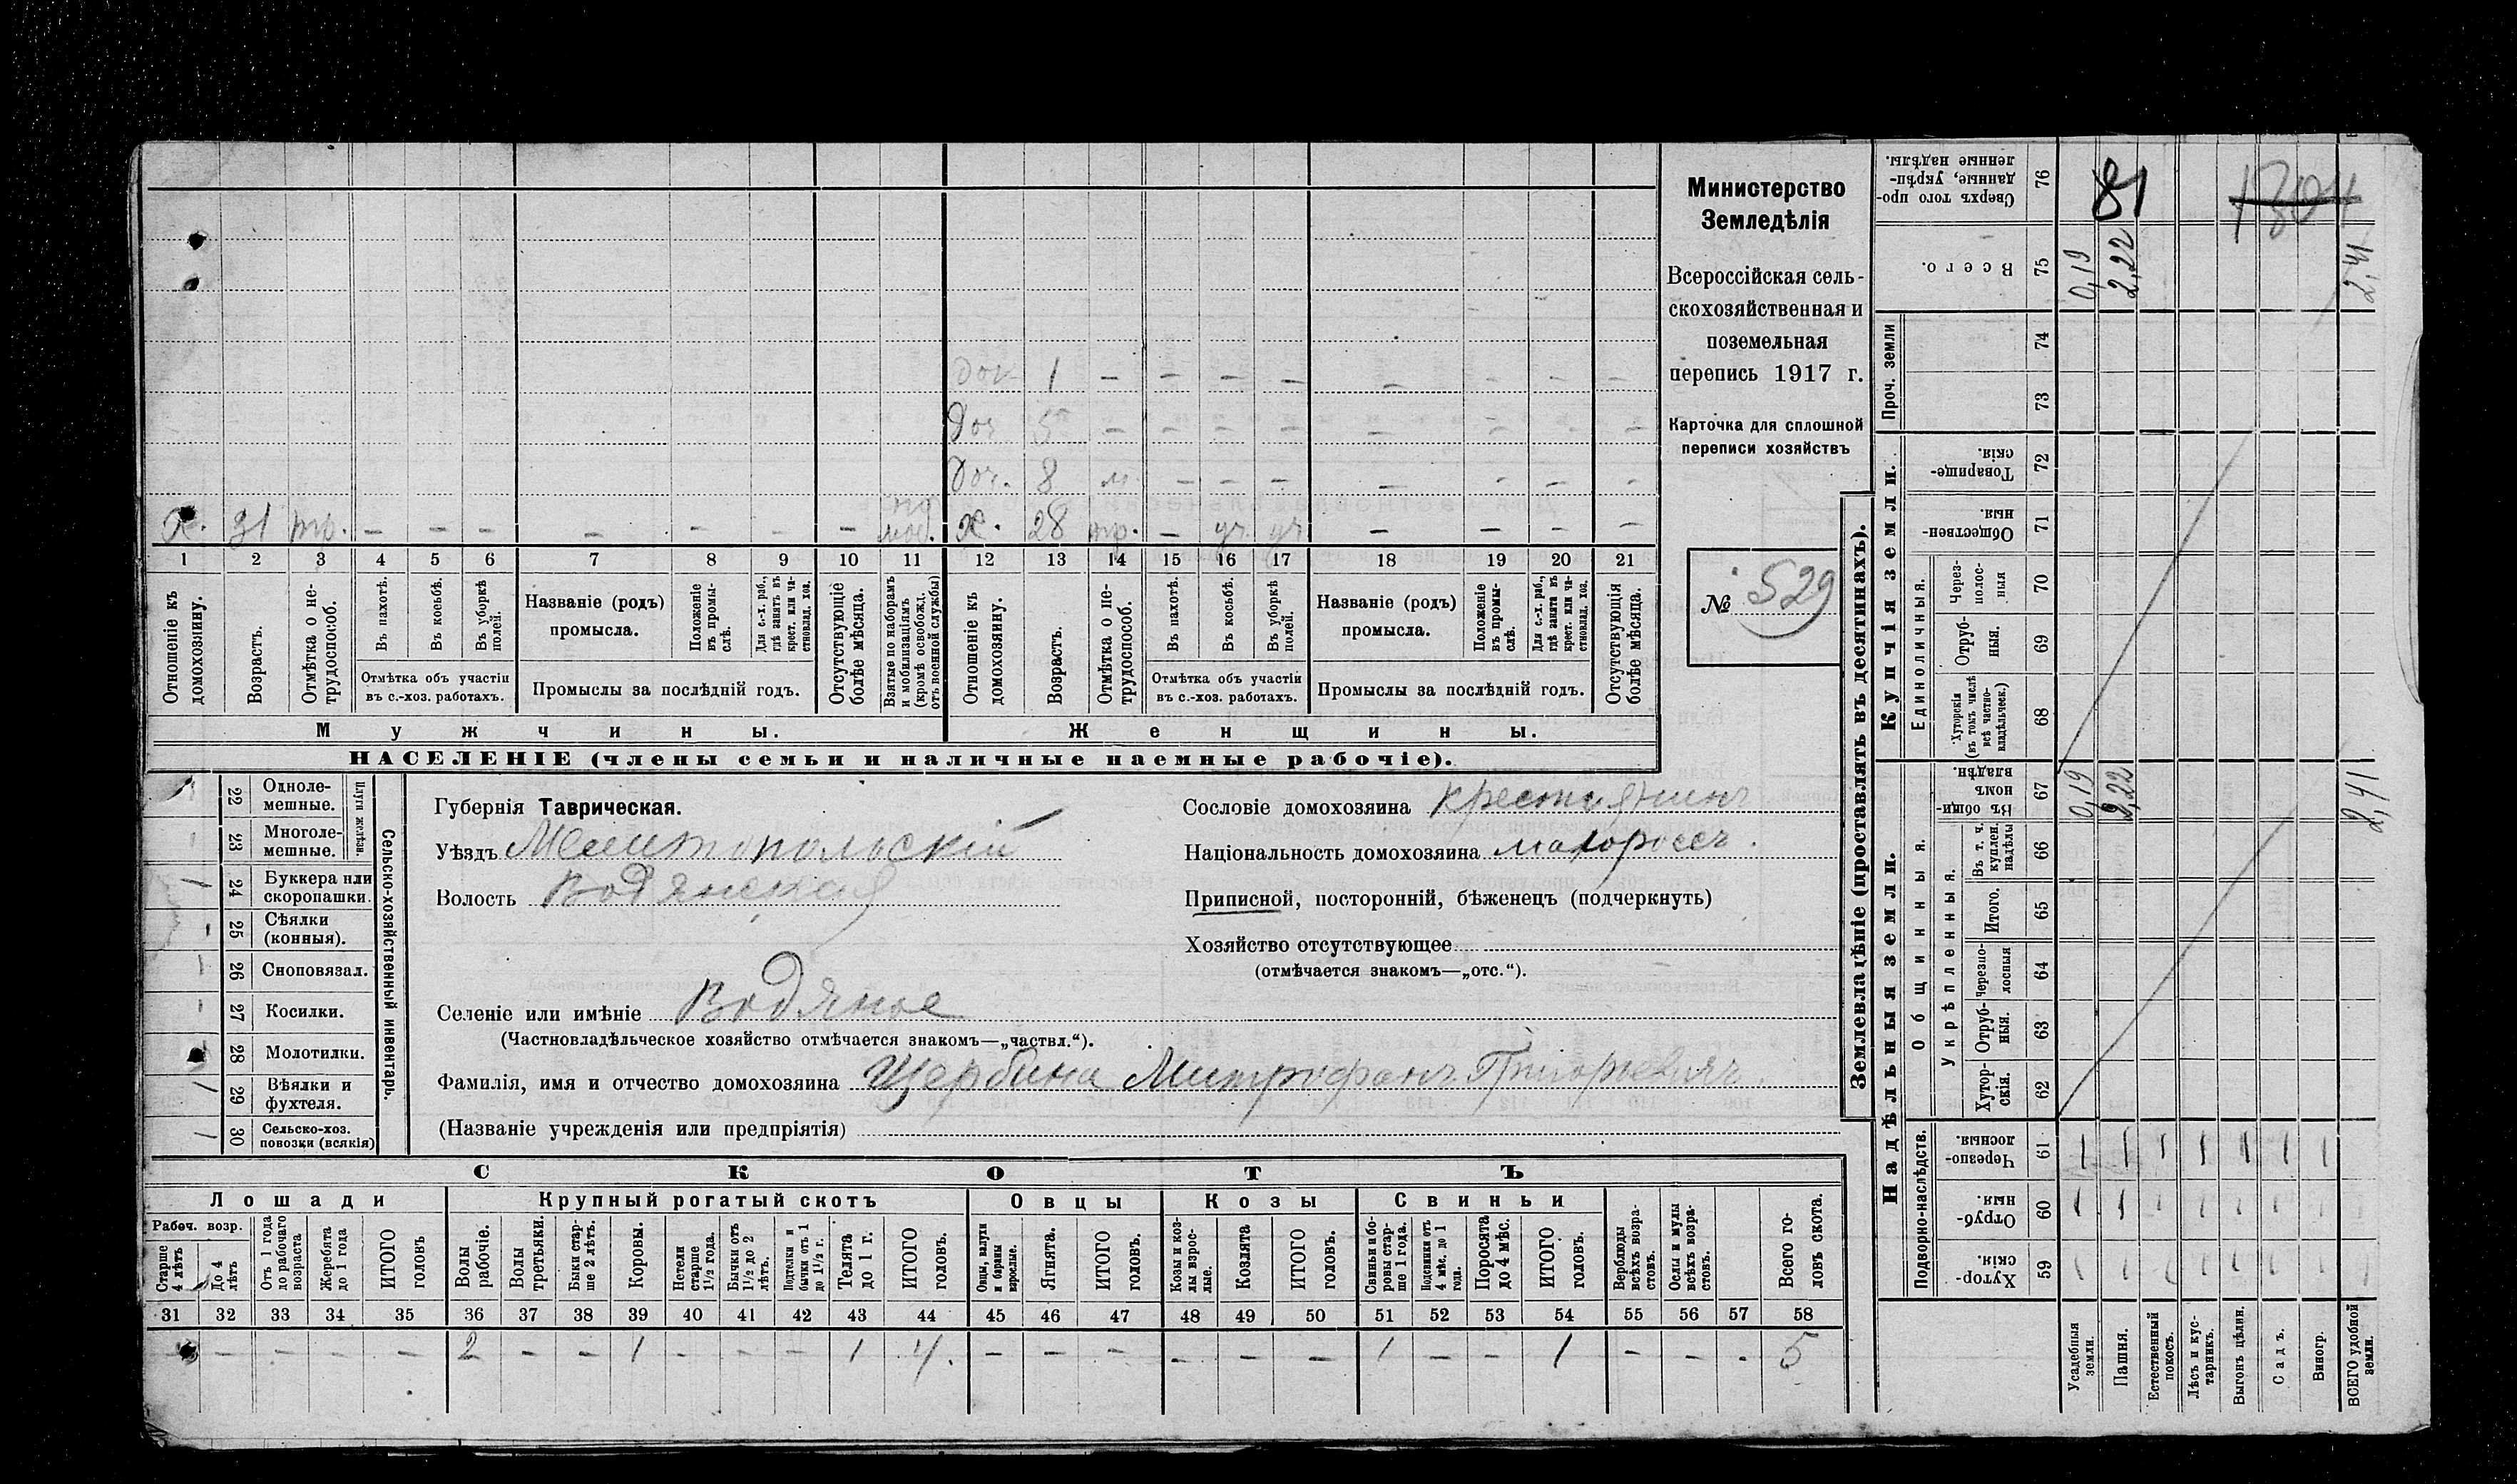 Министерство
Земледѣлія
Всероссійская сель-
скохозяйственная и
поземельная
перепись 1917 г.
Карточка для сплошной
переписи хозяйствъ
№ 529
доч 1 — — — — — — — —
доч 5 — — — — — — — —
доч. 8 м — — — — — — —
х. 31 тр. — — — — — — — по моб. х. 28 тр. — уч. уч — — — —
1 2 3 4 5 6 7 8 9 10 11 12 13 14 15 16 17 18 19 20 21
Отношеніе къ домохозяину.
Возрастъ.
Отмѣтка о не-трудоспособ.
Въ пахотѣ.
Въ косьбѣ.
Въ уборкѣ полей.
Отмѣтка объ участіи въ с.-хоз. работахъ.
Названіе (родъ) промысла.
Положеніе въ промы-слѣ.
Для с.-х. раб., гдѣ занятъ въ крест. или ча-стновлад. хоз.
Промыслы за послѣдній годъ.
Отсутствующіе болѣе мѣсяца.
Взятые по наборамъ и мобилизаціямъ (кромѣ освобожд. отъ военной службы)
Отношеніе къ домохозяину.
Возрастъ.
Отмѣтка о не-трудоспособ.
Въ пахотѣ.
Въ косьбѣ.
Въ уборкѣ полей.
Отмѣтка объ участіи въ с.-хоз. работахъ.
Названіе (родъ) промысла.
Положеніе въ промы-слѣ.
Для с.-х. раб., гдѣ занята въ крест. или ча-стновлад. хоз.
Промыслы за послѣдній годъ.
Отсутствующія болѣе мѣсяца.
Мужчины. Женщины.
НАСЕЛЕНІЕ (члены семьи и наличные наемные рабочіе).
Сельско-хозяйственный инвентарь.
Плуги желѣзн.
22 Одноле-мешные.
23 Многоле-мешные.
24 Буккера или скоропашки.
25 Сѣялки (конныя).
26 Сноповязал.
27 Косилки.
28 Молотилки.
29 Вѣялки и фухтеля.
30 Сельско-хоз. повозки (всякія)
Губернія Таврическая.
Уѣздъ Мелитопольскій
Волость Водянская
Селеніе или имѣніе Водяное
(Частновладѣльческое хозяйство отмѣчается знакомъ—„частвл.“).
Фамилія, имя и отчество домохозяина Щербина Митрофанъ Григорьевичъ.
(Названіе учрежденія или предпріятія)
Сословіе домохозяина крестьянинъ
Національность домохозяина малороссъ.
Приписной, посторонній, бѣженецъ (подчеркнуть)
Хозяйство отсутствующее
(отмѣчается знакомъ—„отс.“).
СКОТЪ
Лошади Крупный рогатый скотъ Овцы Козы Свиньи
Рабоч. возр.
Старше 4 лѣтъ
До 4 лѣтъ
Отъ 1 года до рабочаго возраста
Жеребята до 1 года
ИТОГО головъ
Волы рабочіе.
Волы третьяки.
Быки стар-ше 2 лѣтъ.
Коровы.
Нетели старше 1½ года.
Бычки отъ 1½ до 2 лѣтъ.
Подтелки и бычки отъ 1 до 1½ г.
Телята до 1 г.
ИТОГО головъ.
Овцы, валухи и бараны взрослые.
Ягнята.
ИТОГО головъ.
Козы и коз-лы взрос-лые.
Козлята
ИТОГО головъ.
Свиньи и бо-ровы стар-ше 1 года.
Подсвинки отъ 4 мѣс. до 1 года.
Поросята до 4 мѣс.
ИТОГО головъ.
Верблюды всѣхъ возра-стовъ.
Ослы и мулы всѣхъ возра-стовъ.
Всего го-ловъ скота.
31 32 33 34 35 36 37 38 39 40 41 42 43 44 45 46 47 48 49 50 51 52 53 54 55 56 57 58
— — — — 2 — — 1 — — — 1 4. — — — — — — 1 — — 1 — — - 5
Землевладѣніе (проставлять въ десятинахъ).
Надѣльныя земли. Купчія земли. Проч. земли
Подворно-наслѣдств.
Общинныя.
Укрѣпленныя.
Единоличныя.
59 Хутор-скія.
60 Отруб-ныя.
61 Черезпо-лосныя.
62 Хутор-скія.
63 Отруб-ныя.
64 Черезпо-лосныя
65 Итого.
66 Въ т. ч. куплен. надѣлы
67 Въ общи-номъ владѣн.
68 Хуторскія (въ томъ числѣ всѣ частно-владѣльческ.)
69 Отруб-ныя.
70 Через-полос-ныя
71 Обществен-ныя.
72 Товарище-скія.
73
74
75 Всего.
76 Сверхъ того про-данные, укрѣп-ленные надѣлы.
Усадебныя земли.
Пашня.
Естественный покосъ.
Лѣсъ и кус-тарникъ.
Выгонъ цѣлин.
Садъ.
Виногр.
ВСЕГО удобной земли.
0,19 2,22 2,41
0,19 2,22 2,41
81
1804